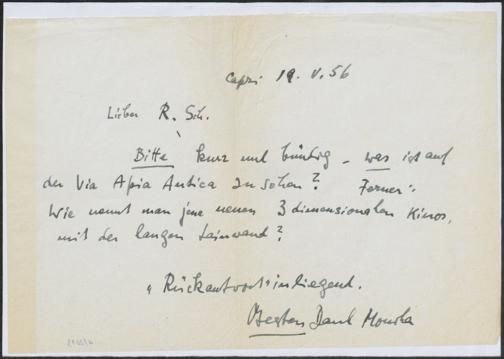 Capri 19. V. 56
Lieber R. Sch.
Bitte kurz und bündig – was ist auf
der Via Apia Antica zu sehen? Ferner:
Wie nennt man jene neuen 3 dimensionalen Kinos,
mit der langen Leinwand?
"Rückantwort" inliegend.
Besten Dank Monika